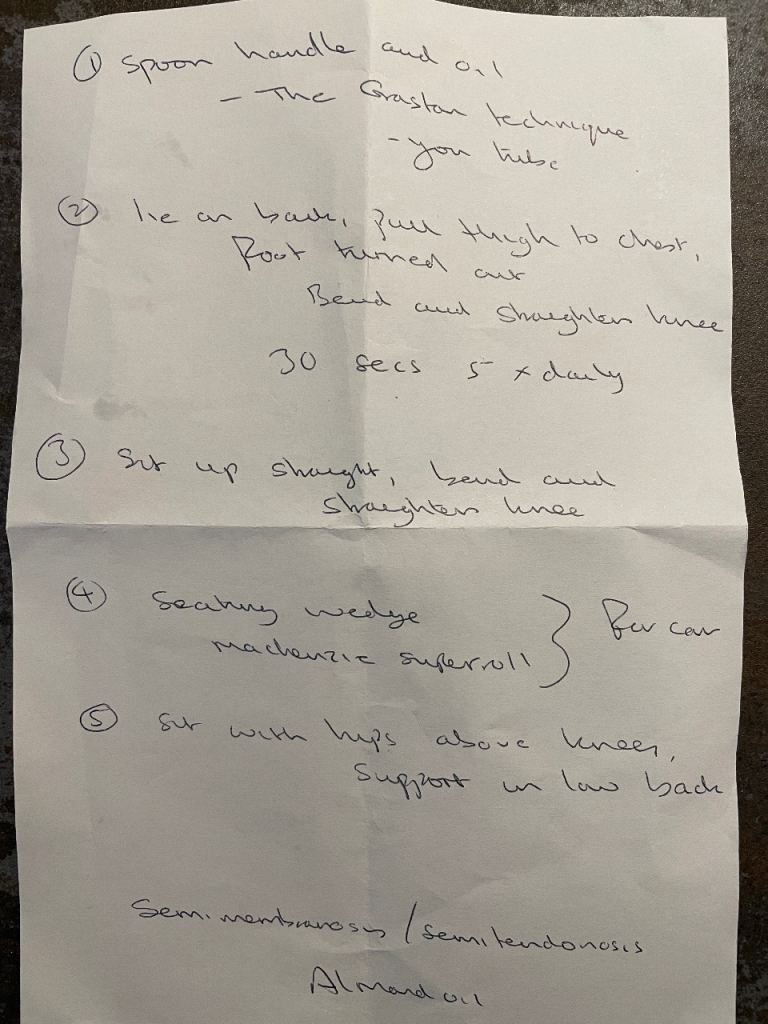 ① Spoon handle and oil
- The Grastan technique
- you tube
② lie on back, pull thigh to chest,
Foot turned out
Bend and straighten knee
30 secs 5 x daily
③ Sit up straight, bend and
straighten knee
④ Seating wedge
mackenzie superroll } For car
⑤ Sit with hips above knees,
Support in low back
Semimembranosis / semitendonosis
Almond oil